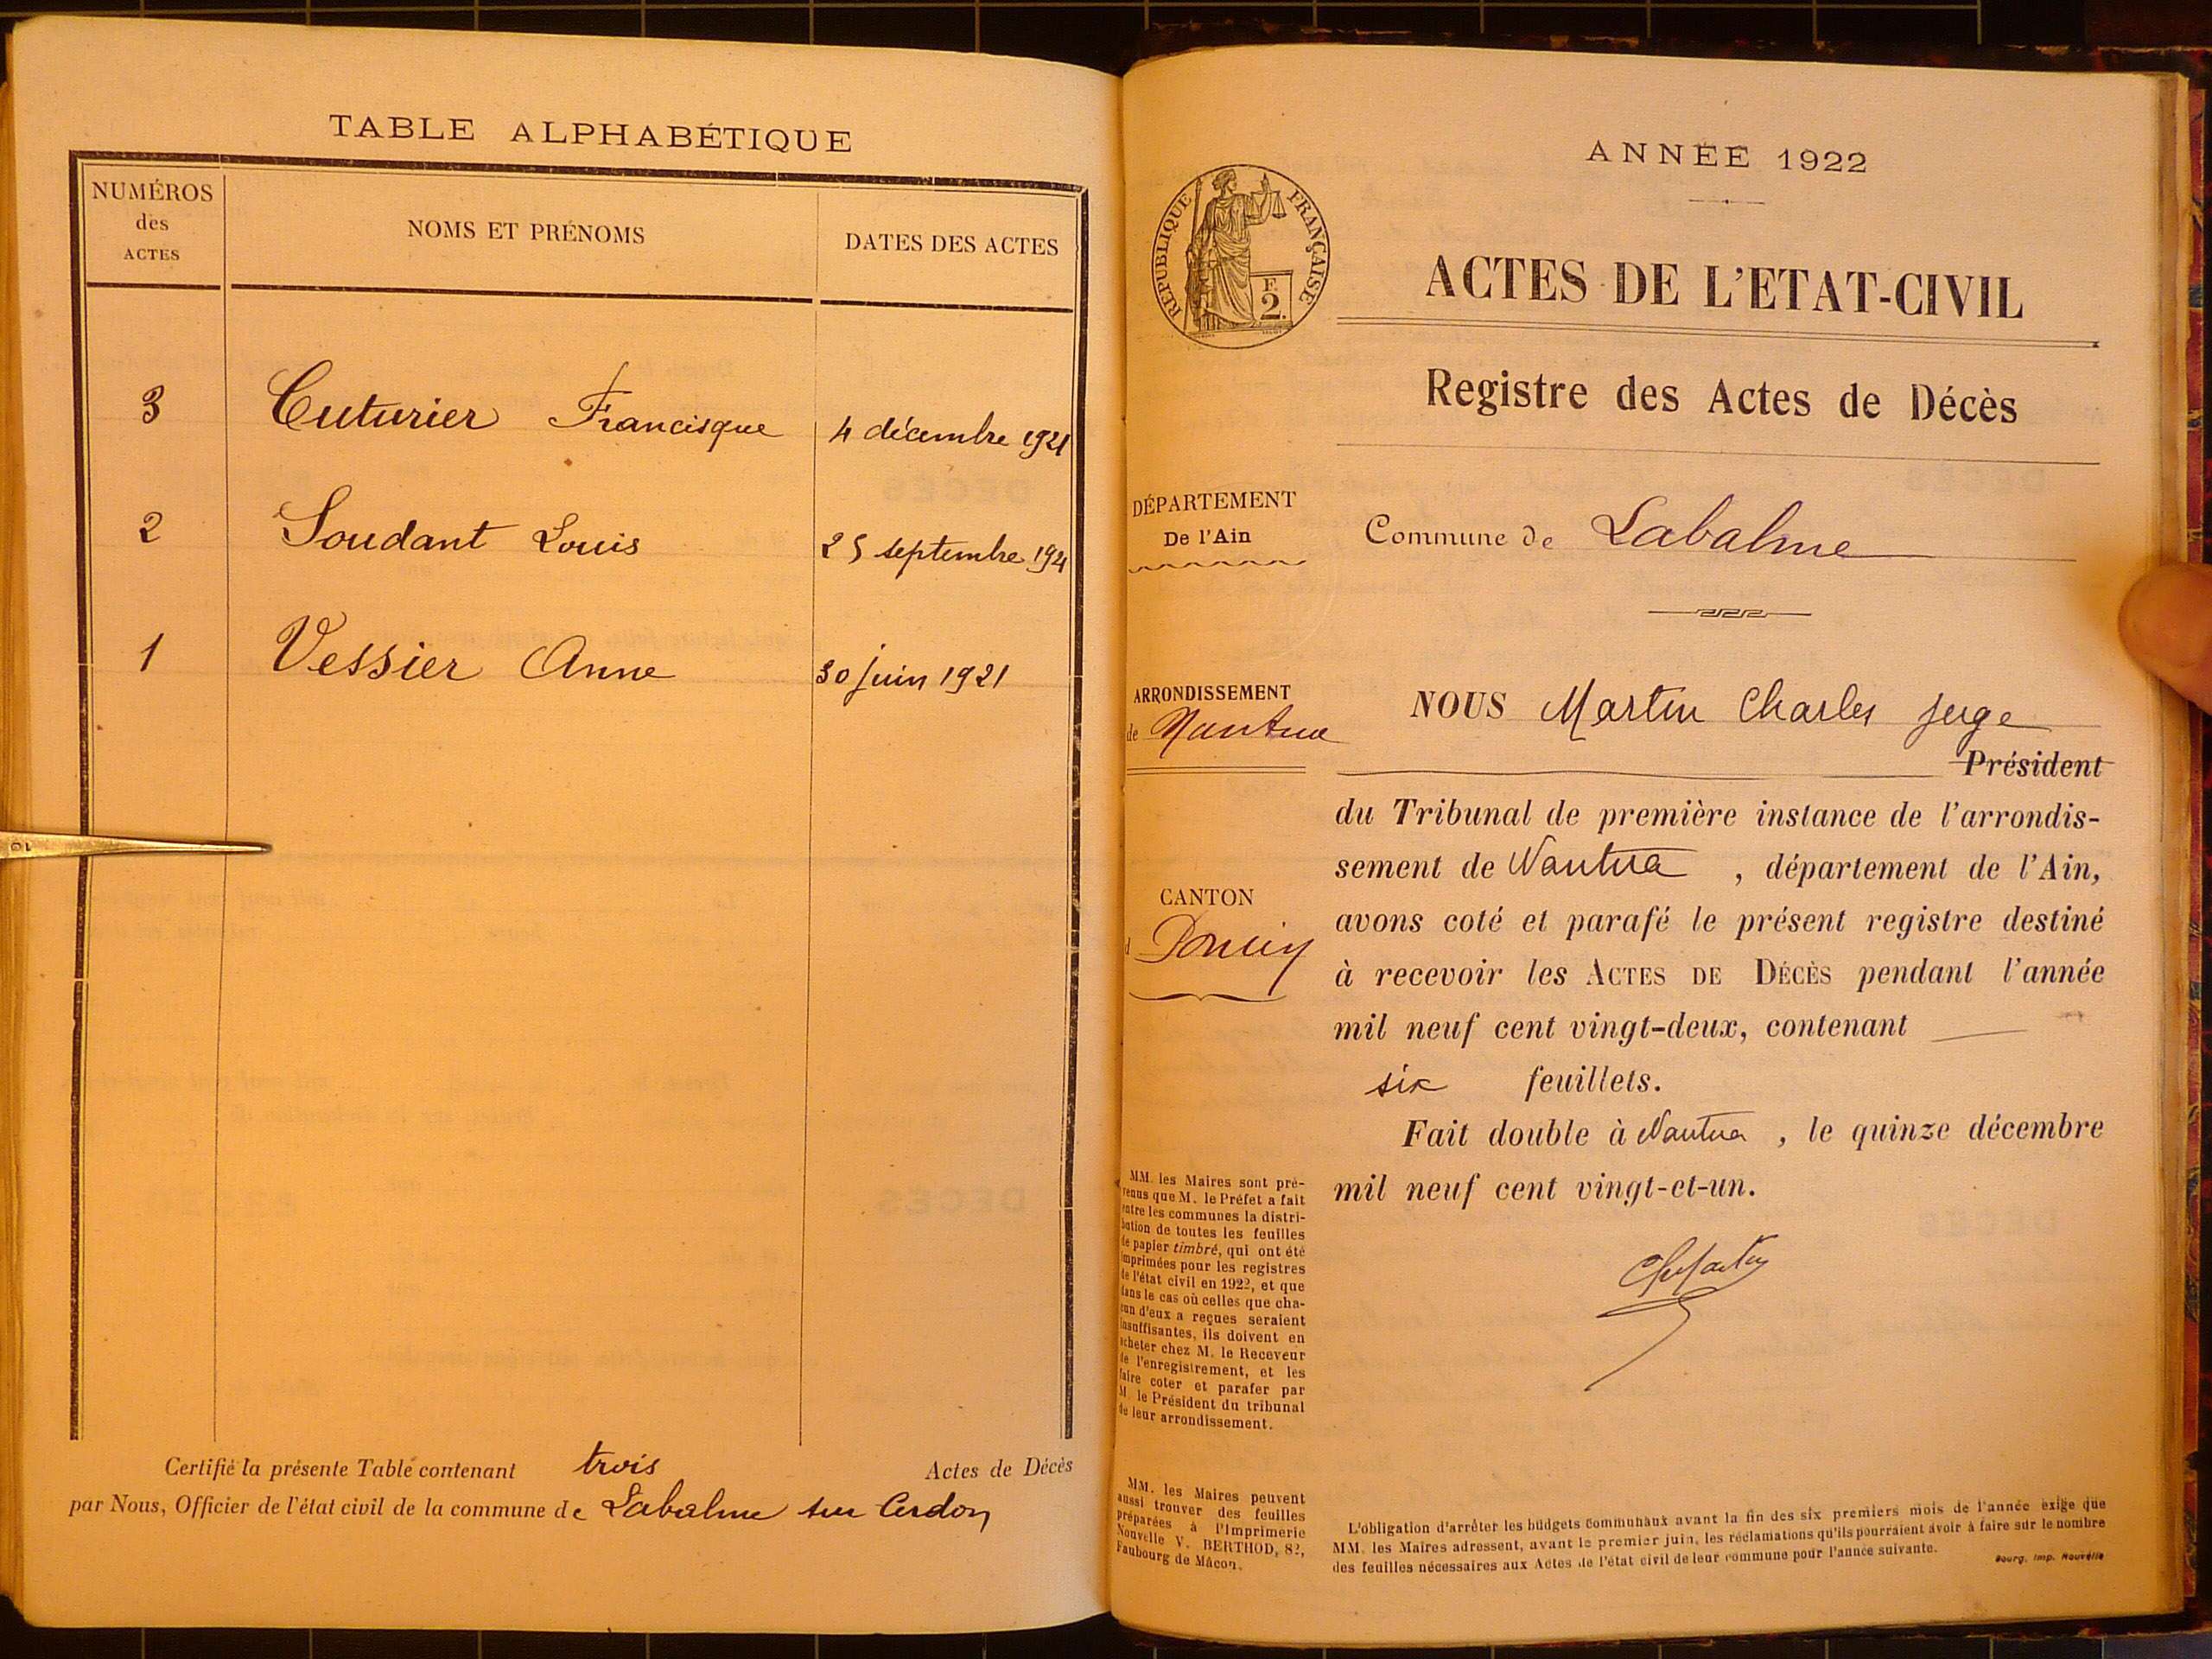 TABLE ALPHABÉTIQUE
NUMÉROS
des
ACTES
NOMS ET PRÉNOMS
DATES DES ACTES
3 Cuturier Francisque 4 décembre 1921
2 Soudant Louis 25 septembre 1921
1 Vessier Anne 30 juin 1921
Certifié la présente Table contenant trois Actes de Décès
par Nous, Officier de l'état civil de la commune de Labalme sur Cerdon
ANNÉE 1922
RÉPUBLIQUE FRANÇAISE
F.
2.
ACTES DE L'ETAT-CIVIL
Registre des Actes de Décès
DÉPARTEMENT
De l'Ain
Commune de Labalme
ARRONDISSEMENT
de Nantua
CANTON
d Poncin
NOUS Martin Charles juge
Président
du Tribunal de première instance de l'arrondis-
sement de Nantua, département de l'Ain,
avons coté et parafé le présent registre destiné
à recevoir les ACTES DE DÉCÈS pendant l'année
mil neuf cent vingt-deux, contenant
six feuillets.
Fait double à Nantua, le quinze décembre
mil neuf cent vingt-et-un.
MM. les Maires sont pré-
venus que M. le Préfet a fait
entre les communes la distri-
bution de toutes les feuilles
de papier timbré, qui ont été
imprimées pour les registres
de l'état civil en 1922, et que
dans le cas où celles que cha-
cun d'eux a reçues seraient
insuffisantes, ils doivent en
acheter chez M. le Receveur
de l'enregistrement, et les
faire coter et parafer par
M. le Président du tribunal
de leur arrondissement.
MM. les Maires peuvent
aussi trouver des feuilles
préparées à l'Imprimerie
Nouvelle V. BERTHOD, 82,
Faubourg de Mâcon.
L'obligation d'arrêter les budgets communaux avant la fin des six premiers mois de l'année exige que
MM. les Maires adressent, avant le premier juin, les réclamations qu'ils pourraient avoir à faire sur le nombre
des feuilles nécessaires aux Actes de l'état civil de leur commune pour l'année suivante.
Bourg, Imp. Nouvelle